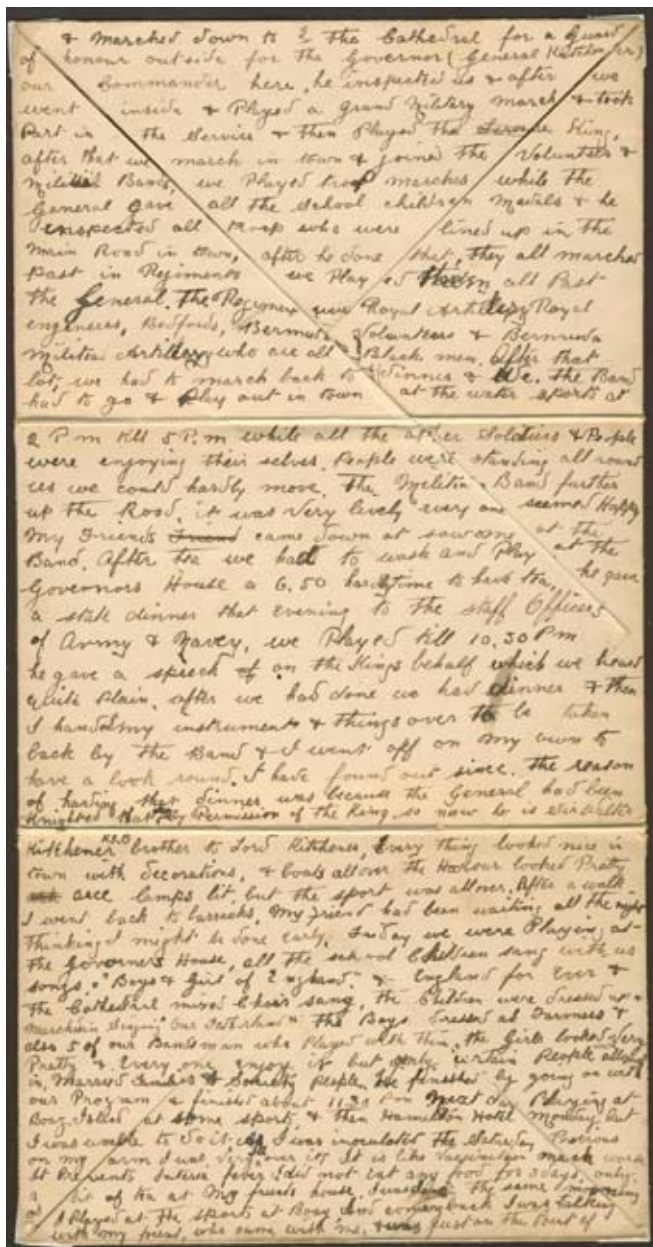 & marched down to the Cathedral for a Guard
of honour outside for the Governor (General Kitchener)
our Commander here, he inspected us & after we
went inside & Played a grand Military march & took
Part in the Service & then Played the King,
after that we march in town & joined the Volunteers &
Militia Bands, we Played troop marches while the
General Gave all the School children Medals & he
inspected all troop who were lined up in the
Main Road in town, after he done that, they all marched
Past in Regiments we Play ed them all Past
the General. The Regimex were Royal Artillery Royal
engeneers, Bedfords, Bermuda Volunteers & Bermuda
Militia Artillery who are all Black men. After that
lot, we had to march back to dinner & We. the Band
had to go & Play out in town at the water sports at
2 P.m till 5 P.m while all the other Soldiers & People
were enjoying their selves. People were standing all round
us we could hardly move. The Melitia Band further
up the Road. it was very lively every one seemed Happy
My Friends Friend came down & saw me at the
Band. After tea we had to wash and Play at the
Governors House a 6.50 hardly time to have tea, he gave
a state dinner that evening to the staff Officers
of Army & Navey, we Played till 10.30 Pm
he gave a speech on the Kings behalf which we heard
quite Plain, after we had done we had dinner & then
I handed my instrument & things over to be taken
back by the Band & I went off on my own to
have a look round. I have found out since. the reason
of harding that dinner was because the General had been
Knighted that by Permission of the King, so now he is Sir Walter
Kitchener brother to Lord Kitchener, Every thing looked nice in
town with decorations, & boats all over the Harour looked Pretty
arce lamps lit, but the sport was all over. After a walk
I went back to barricks, my friend had been waiting all the night
thinking I might be done early. Friday we were Playing at
the Governers House, all the school Children sang with us
songs, "Boys & Girl of England." & England for Ever &
the Cathedral mixed Choir sang, the Children were dressed up &
marchin singing "Our Fatherland" the Boys dressed as Farmers &
also 5 of our Bandsman who Played with them, the Girls looked very
Pretty & Every one enjoy it but only certain People allowed
in, Married families & Society People, We finished by going on with
our Program & finished about 11.30 Pm Next day Playing at
Boaz Island at some sports, & then Hamilton Hotel Monday, but
I was unable to do it as I was inoculated the Saturday Previous
on my arm I was very over it, It is like vaccination
It Prevents Interic fever I did not eat any food for 3 days, only
a bit of tea at My friends house, the same morning
I Played at the sports at Boaz and coming back I was talking
with my friend, who came with me, & was just on the Point of